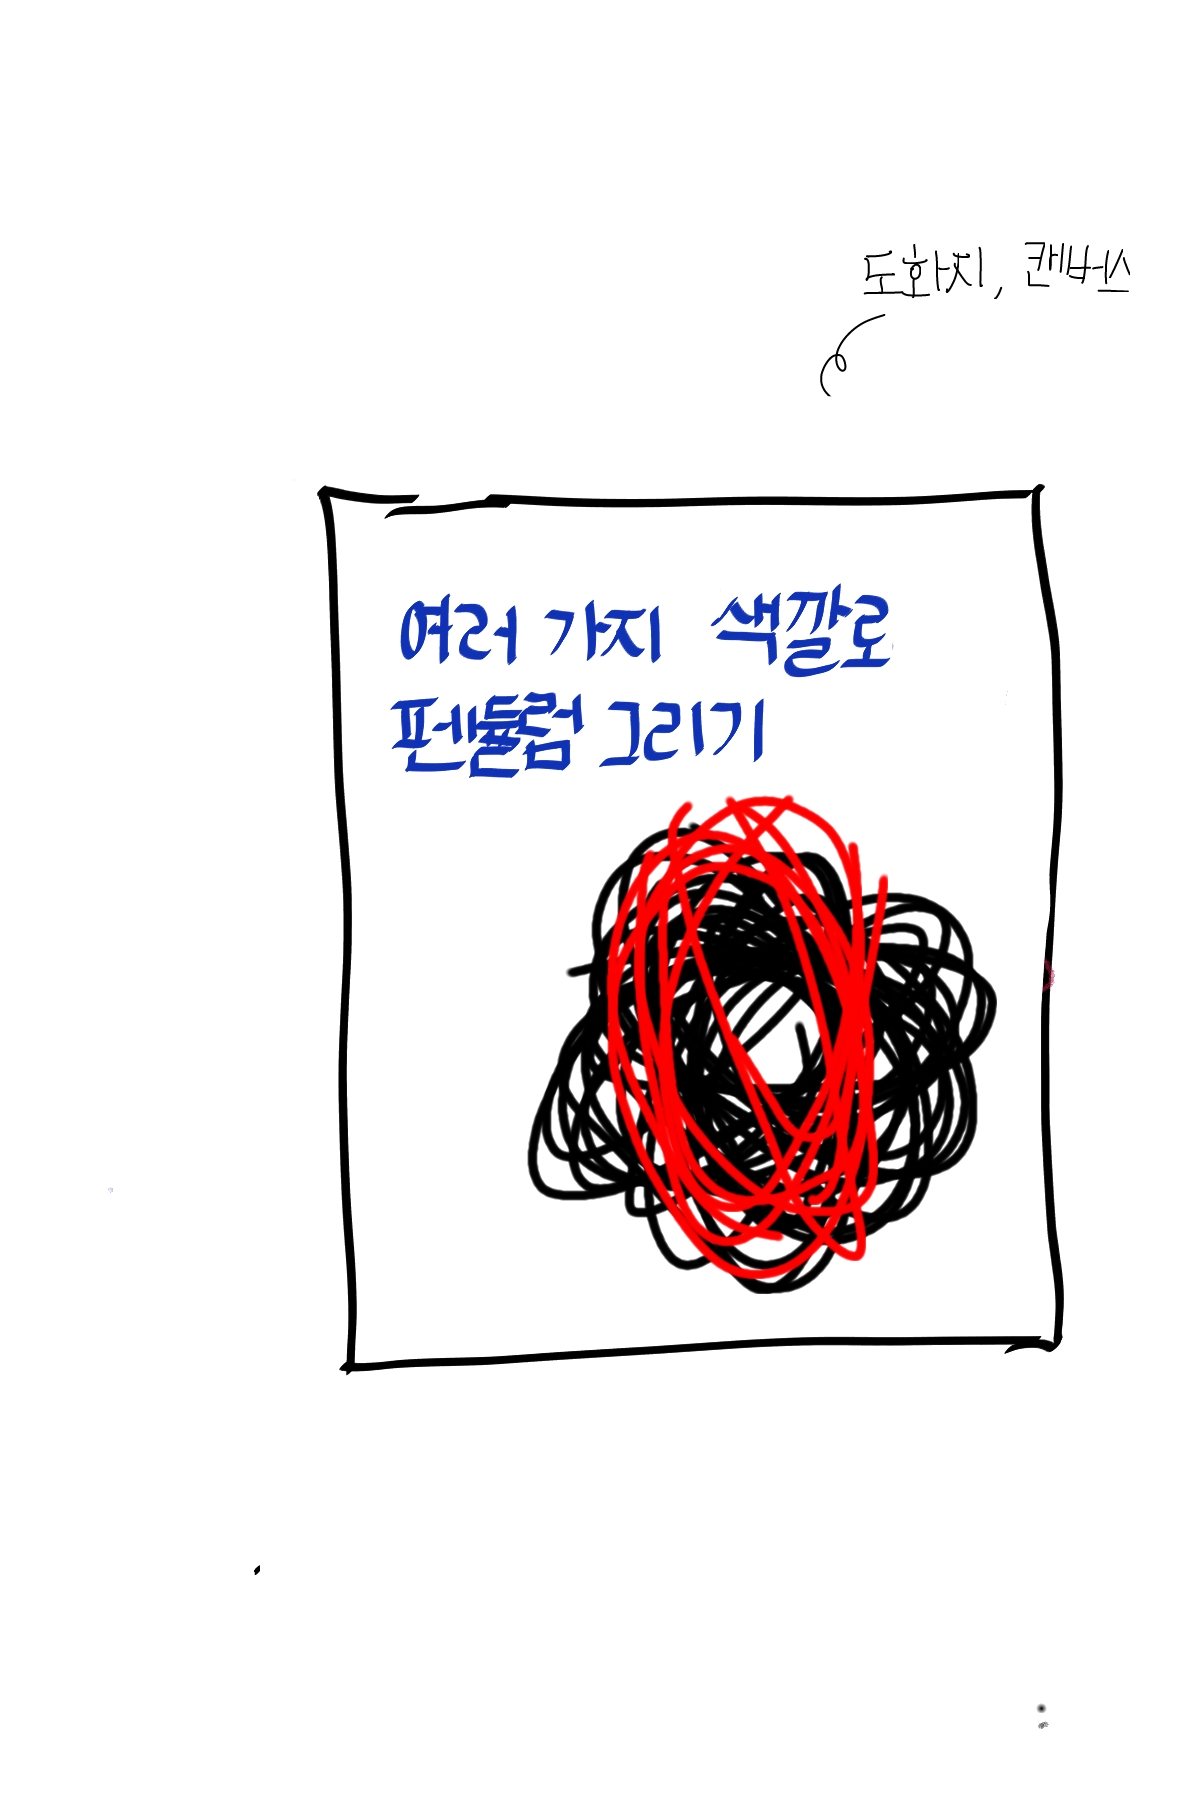 도화지, 캔버스
여러 가지 색깔로
펜듈럼 그리기